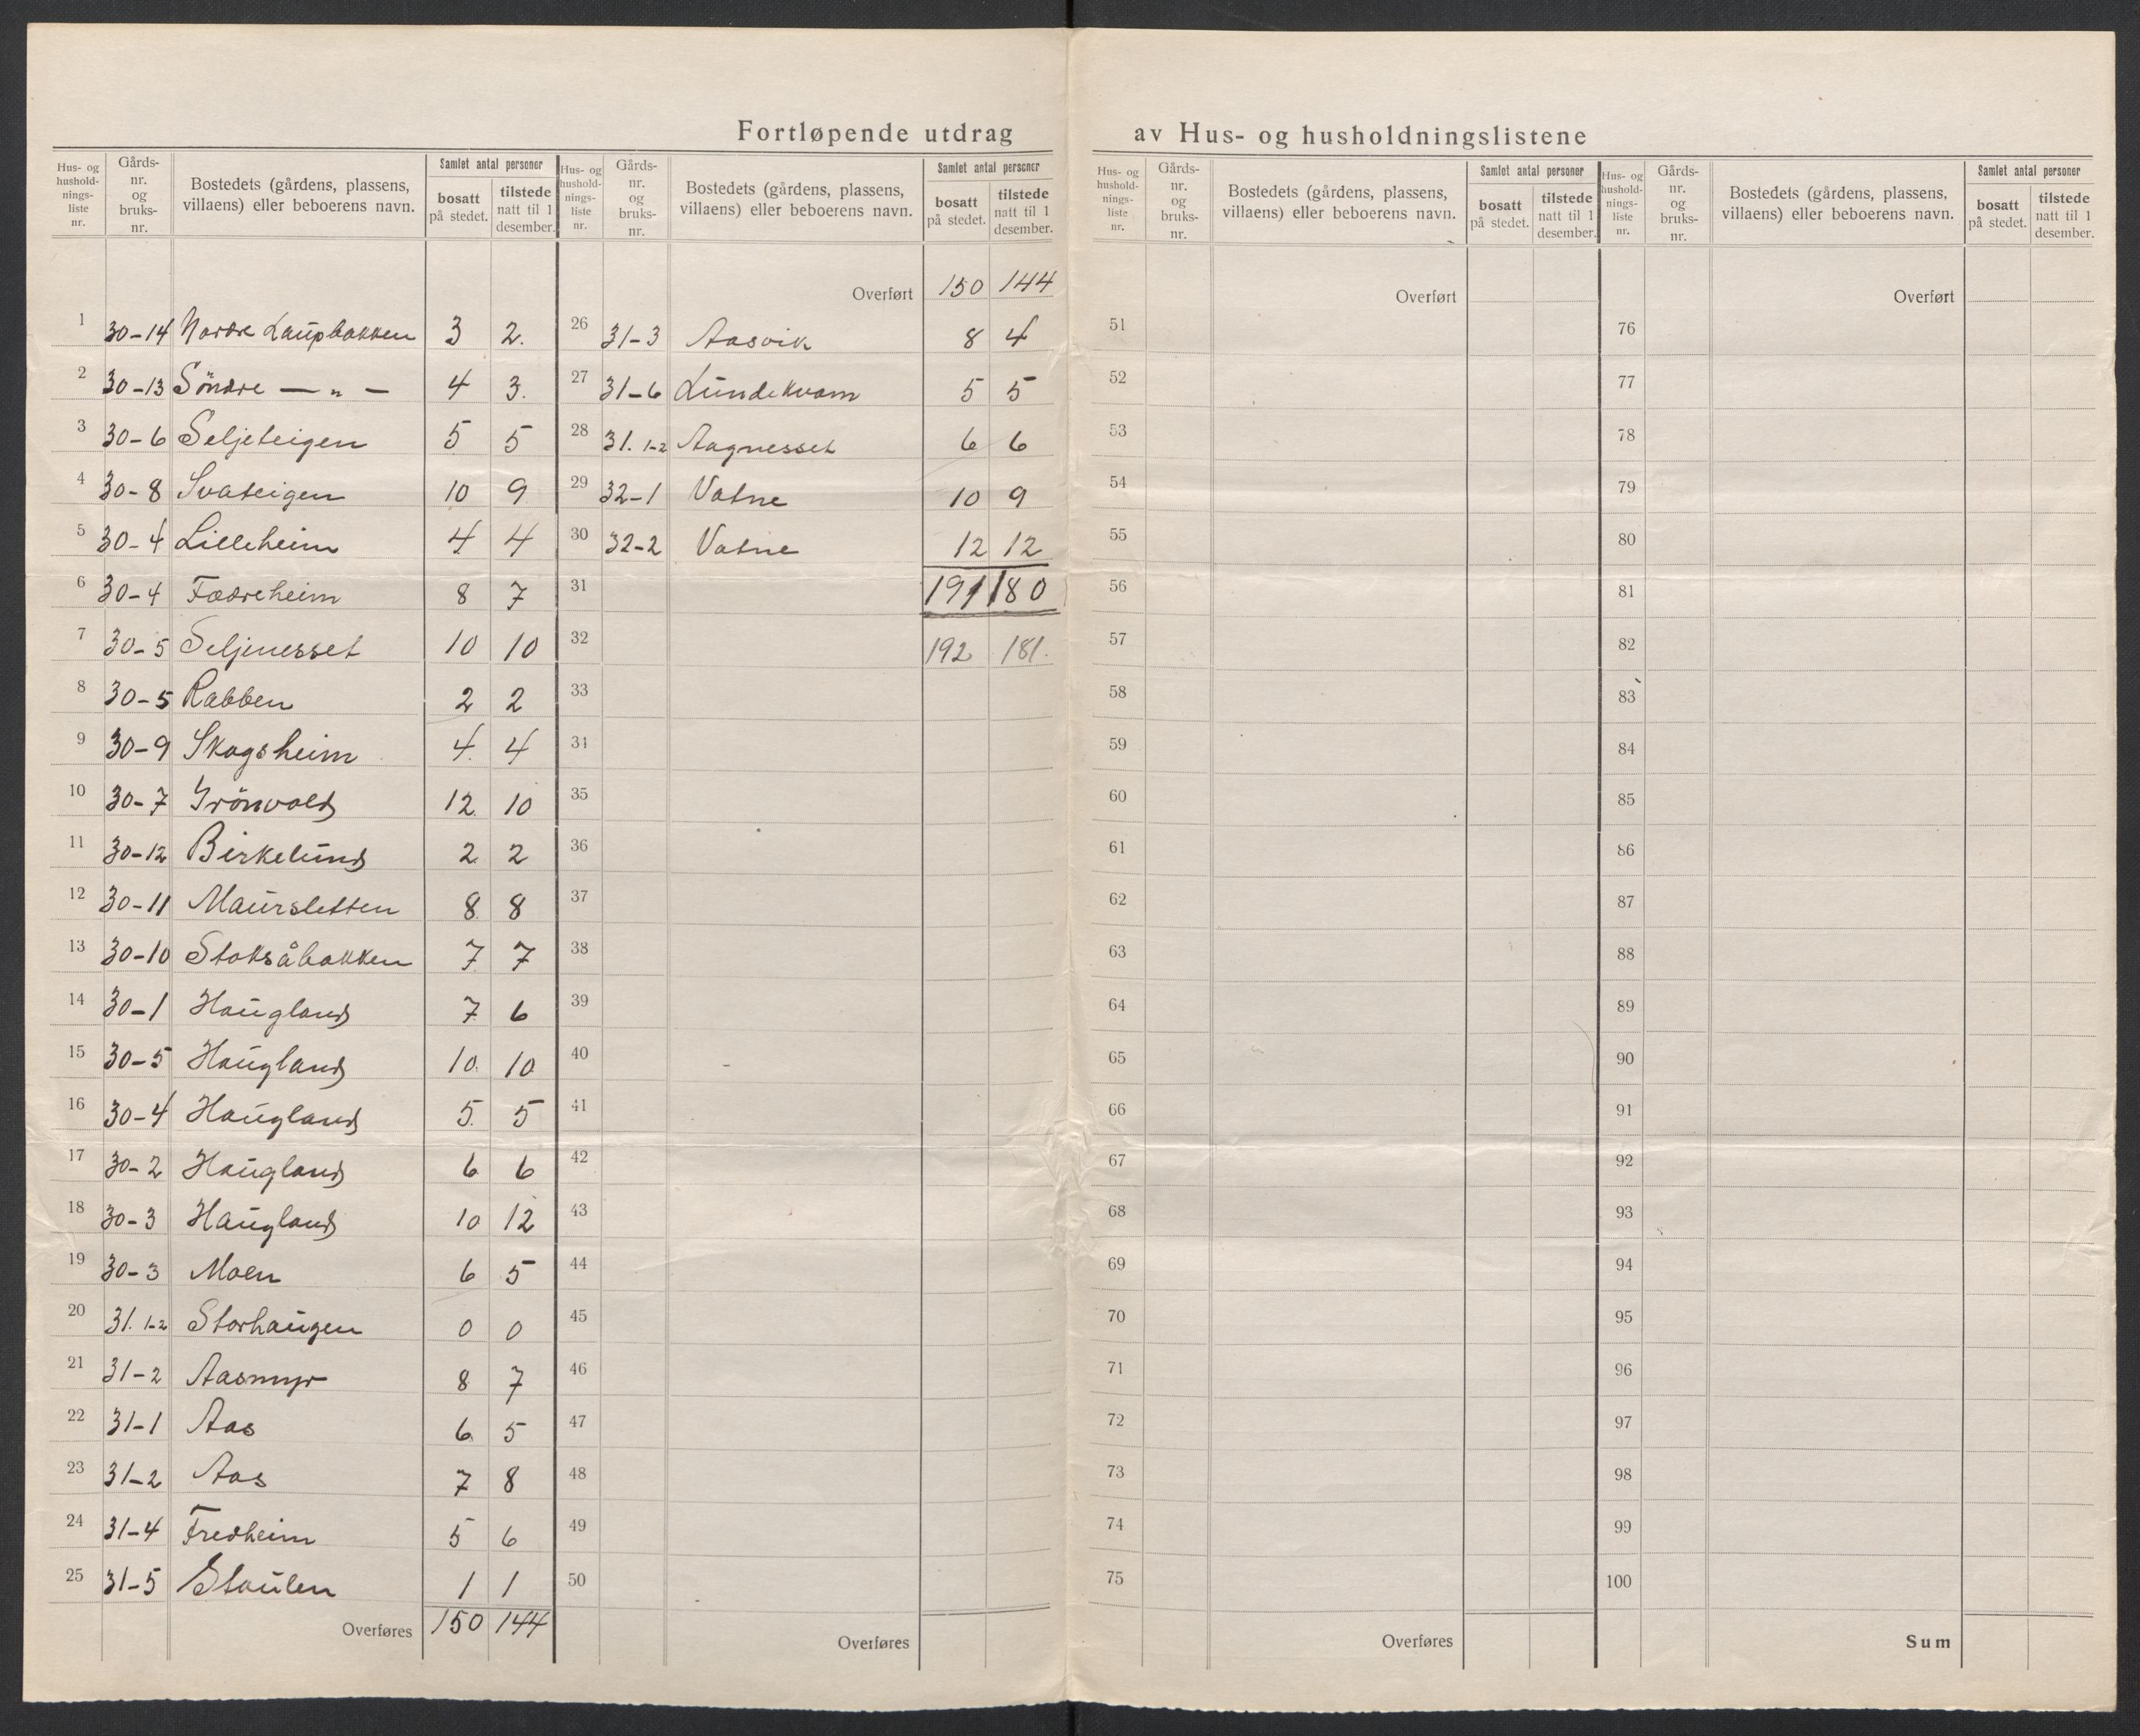 Fortløpende utdrag av Hus- og husholdningslistene
Hus- og husholdnings- liste nr. | Gårds- nr. og bruks- nr. | Bostedets (gårdens, plassens, villaens) eller beboerens navn. | Samlet antal personer bosatt på stedet. | tilstede natt til 1 desember.
1 30-14 Nordre Laupbakken 3 2.
2 30-13 Söndre — " — 4 3.
3 30-6 Seljeteigen 5 5
4 30-8 Svateigen 10 9
5 30-4 Lilleheim 4 4
6 30-4 Fædreheim 8 7
7 30-5 Seljenesset 10 10
8 30-5 Rabben 2 2
9 30-9 Skogsheim 4. 4
10 30-7 Grönvold 12. 10
11 30-12 Birkelund 2 2
12 30-11 Maursletten 8. 8
13 30-10 Stoksåbakken 7. 7
14 30-1 Haugland 7. 6
15 30-5 Haugland 10. 10
16 30-4 Haugland 5. 5
17 30-2 Haugland 6 6
18 30-3 Haugland 10 12
19 30-3 Moen 6 5
20 31. 1-2 Storhaugen 0 0
21 31-2 Aasmyr 8 7
22 31-1 Aas 6. 5
23 31-2 Aas 7 8
24 31-4 Fredheim 5 6
25 31-5 Staulen 1 1
Overføres 150 144
Hus- og husholdnings- liste nr. | Gårds- nr. og bruks- nr. | Bostedets (gårdens, plassens, villaens) eller beboerens navn. | Samlet antal personer bosatt på stedet. | tilstede natt til 1 desember.
Overført 150 144
26 31-3 Aasvik 8 4
27 31-6 Lundekvam 5 5
28 31. 1-2 Aagnesset 6 6
29 32-1 Vatne 10 9
30 32-2 Vatne 12 12
31 191 180
32 192 181.
33
34
35
36
37
38
39
40
41
42
43
44
45
46
47
48
49
50
Overføres
Hus- og husholdnings- liste nr. | Gårds- nr. og bruks- nr. | Bostedets (gårdens, plassens, villaens) eller beboerens navn. | Samlet antal personer bosatt på stedet. | tilstede natt til 1 desember.
Overført
51
52
53
54
55
56
57
58
59
60
61
62
63
64
65
66
67
68
69
70
71
72
73
74
75
Overføres
Hus- og husholdnings- liste nr. | Gårds- nr. og bruks- nr. | Bostedets (gårdens, plassens, villaens) eller beboerens navn. | Samlet antal personer bosatt på stedet. | tilstede natt til 1 desember.
Overført
76
77
78
79
80
81
82
83
84
85
86
87
88
89
90
91
92
93
94
95
96
97
98
99
100
Sum